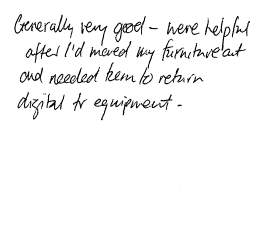 Generally very good - were helpful
after I'd moved my furniture out
and needed them to return
digital tv equipment -